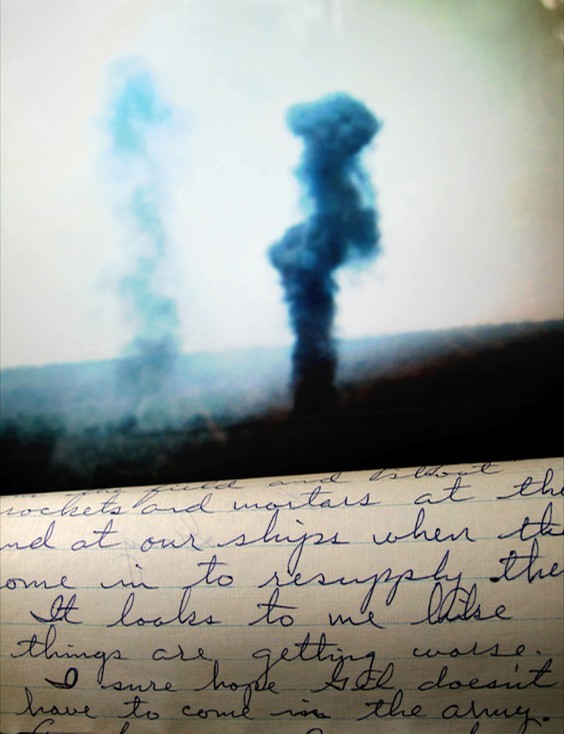 field and
rockets and mortars at the
nd at our ships when the
ome in to resupply the
It looks to me like
things are getting worse.
I sure hope Gil doesn't
have to come in the army.